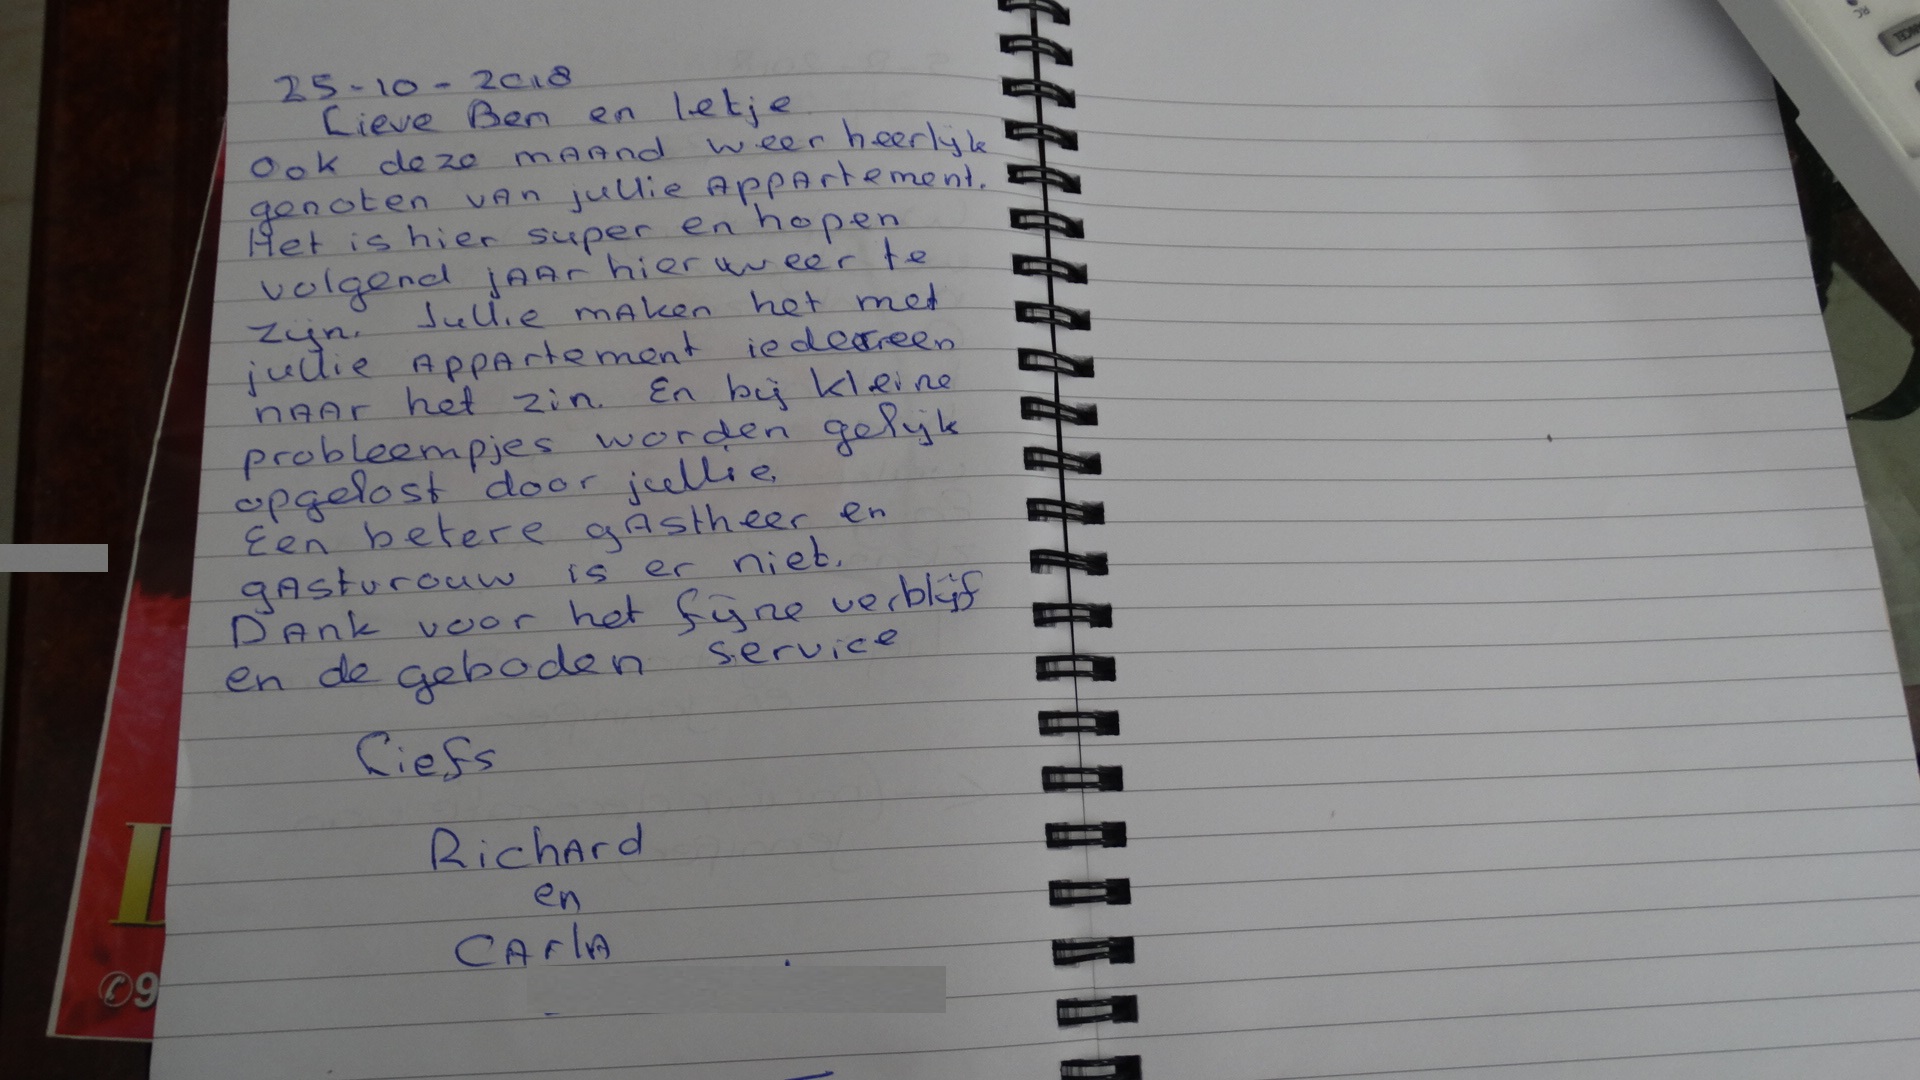 25-10-2018
Lieve Ben en Ietje
Ook deze maand weer heerlijk
genoten van jullie appartement.
Het is hier super en hopen
volgend jaar hier weer te
zijn. Jullie maken het met
jullie appartement iedereen
naar het zin. En bij kleine
probleempjes worden gelijk
opgelost door jullie.
Een betere gastheer en
gastvrouw is er niet.
Dank voor het fijne verblijf
en de geboden service
Liefs
Richard
en
Carla
✆9
CANCEL